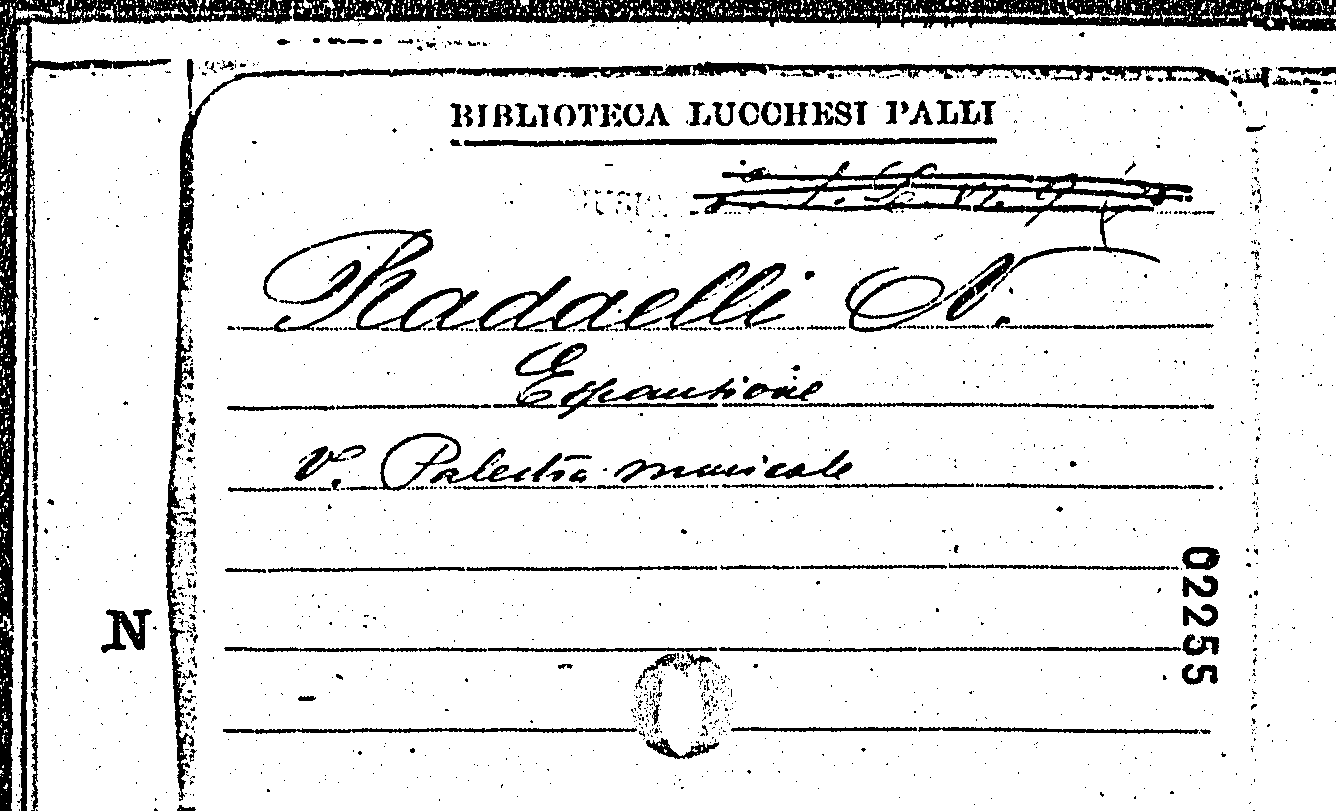 BIBLIOTECA LUCCHESI PALLI
Radaelli A.
Espansione
v. Palestra musicale
02255
N